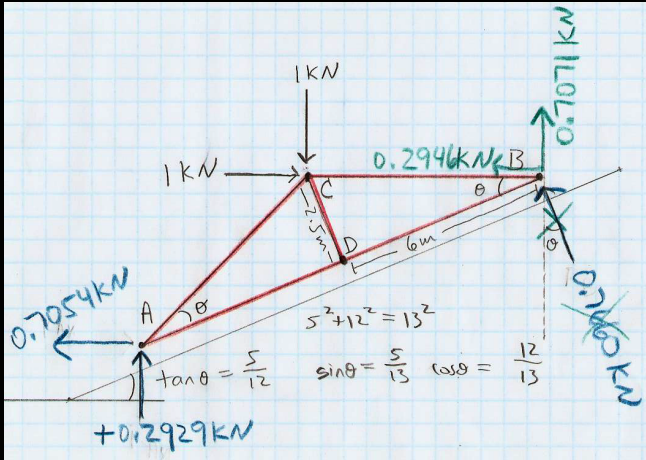 1KN
0.7071KN
1KN
0.2946KN
B
C
θ
2.5m
D
6m
θ
0.7054KN
A
θ
5²+12²=13²
tanθ = 5/12 sinθ = 5/13 cosθ = 12/13
+0.2929KN